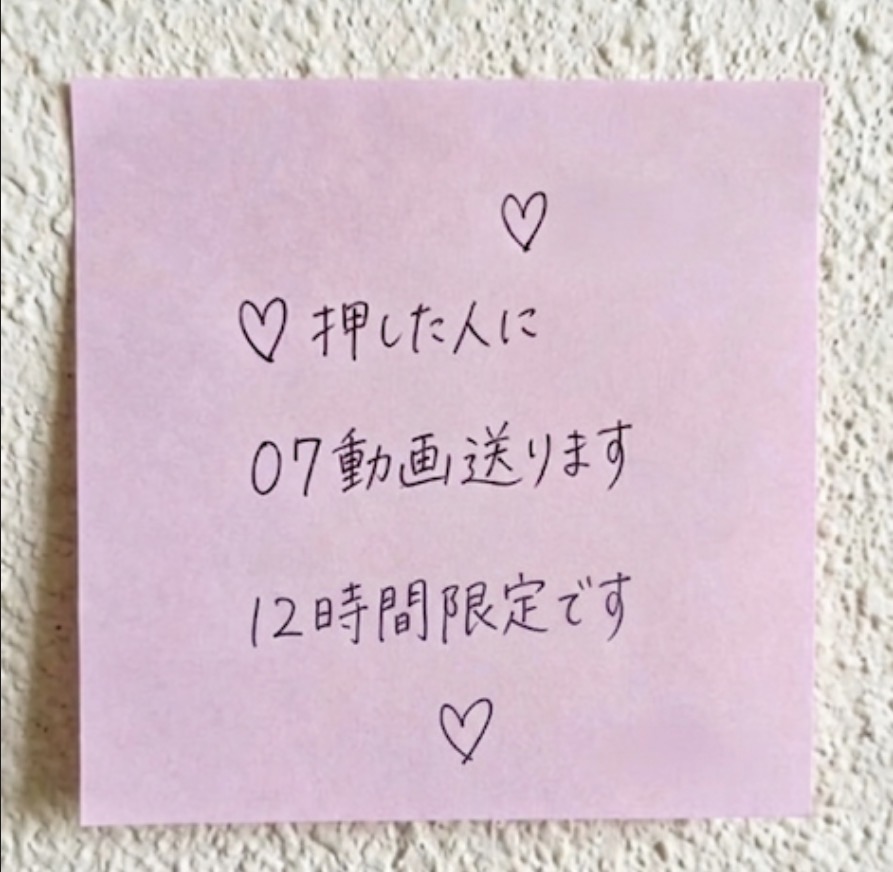 ♡
♡押した人に
07動画送ります
12時間限定です
♡